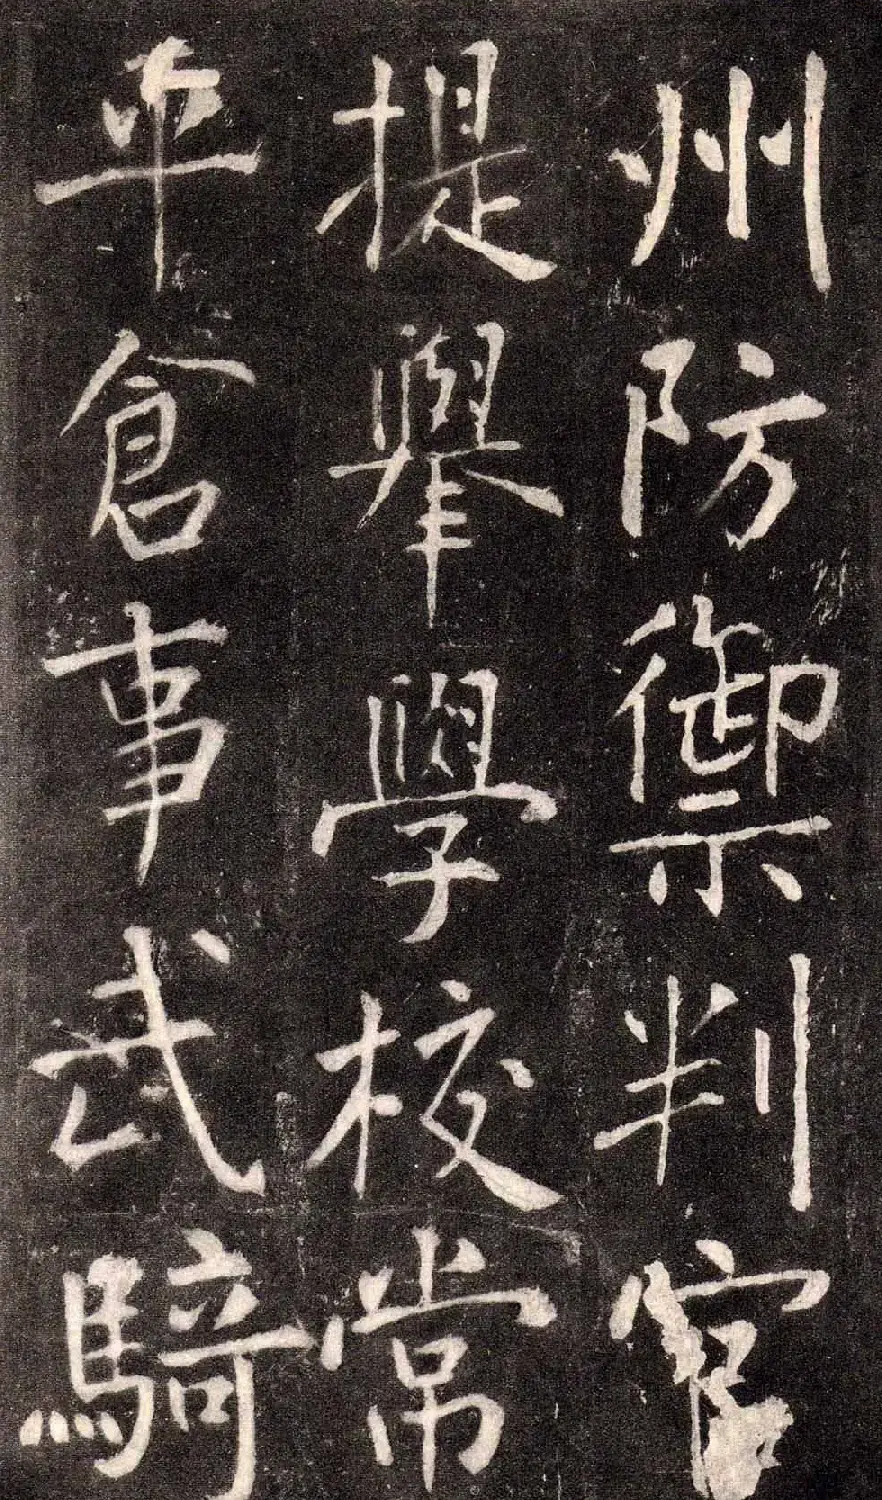 州防禦判官
提舉學校常
平倉事武騎